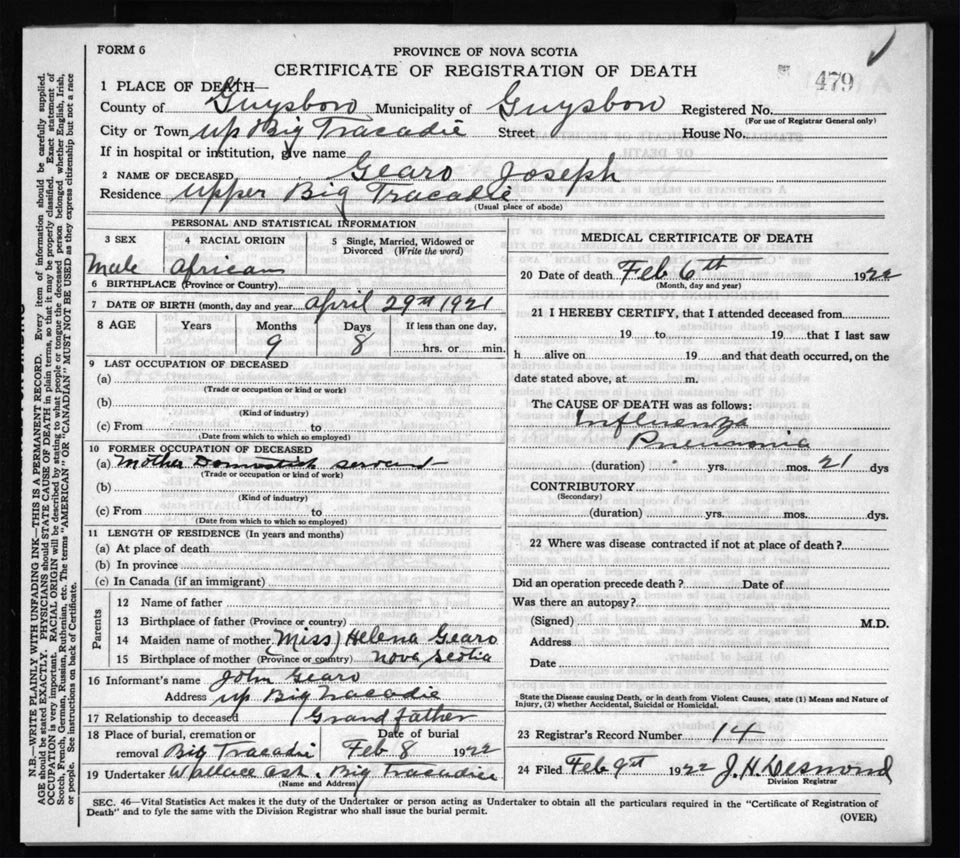 FORM 6
PROVINCE OF NOVA SCOTIA
CERTIFICATE OF REGISTRATION OF DEATH
479
1 PLACE OF DEATH—
County of Guysboro Municipality of Guysboro Registered No.
(For use of Registrar General only)
City or Town Up Big Tracadie Street House No.
If in hospital or institution, give name
2 NAME OF DECEASED Gearo Joseph
Residence Upper Big Tracadie
(Usual place of abode)
PERSONAL AND STATISTICAL INFORMATION
3 SEX 4 RACIAL ORIGIN 5 Single, Married, Widowed or Divorced (Write the word)
Male African
6 BIRTHPLACE (Province or Country)
7 DATE OF BIRTH (month, day and year) April 29th 1921
8 AGE Years Months Days If less than one day,
9 8 hrs. or min.
9 LAST OCCUPATION OF DECEASED
(a)
(Trade or occupation or kind or work)
(b)
(Kind of industry)
(c) From to
(Date from which to which so employed)
10 FORMER OCCUPATION OF DECEASED
(a) Mother Domestick servant
(Trade or occupation or kind of work)
(b)
(Kind of industry)
(c) From to
(Date from which to which so employed)
11 LENGTH OF RESIDENCE (In years and months)
(a) At place of death
(b) In province
(c) In Canada (if an immigrant)
Parents
12 Name of father
13 Birthplace of father (Province or country)
14 Maiden name of mother (Miss) Helena Gearo
15 Birthplace of mother (Province or country) Nova Scotia
16 Informant's name John Gearo
Address up Big Tracadie
17 Relationship to deceased Grand father
18 Place of burial, cremation or Date of burial
removal Big Tracadie Feb 8 1922
19 Undertaker Wallace Ash. Big Tracadie
(Name and Address)
MEDICAL CERTIFICATE OF DEATH
20 Date of death Feb 6th 1922
(Month, day and year)
21 I HEREBY CERTIFY, that I attended deceased from
19 to 19 that I last saw
h alive on 19 and that death occurred, on the
date stated above, at m.
The CAUSE OF DEATH was as follows:
Influenza
Pneumonia
(duration) yrs. mos. 21 dys
CONTRIBUTORY
(Secondary)
(duration) yrs. mos. dys.
22 Where was disease contracted if not at place of death?
Did an operation precede death? Date of
Was there an autopsy?
(Signed) M.D.
Address
Date
State the Disease causing Death, or in death from Violent Causes, state (1) Means and Nature of
Injury, (2) whether Accidental, Suicidal or Homicidal.
23 Registrar's Record Number 14
24 Filed Feb 9th 1922 J. H. Desmond
Division Registrar
SEC. 46—Vital Statistics Act makes it the duty of the Undertaker or person acting as Undertaker to obtain all the particulars required in the "Certificate of Registration of
Death" and to fyle the same with the Division Registrar who shall issue the burial permit.
(OVER)
N.B.—WRITE PLAINLY WITH UNFADING INK—THIS IS A PERMANENT RECORD. Every item of information should be carefully supplied.
AGE should be stated EXACTLY. PHYSICIANS should STATE CAUSE OF DEATH in plain terms, so that it may be properly classified. Exact statement of
OCCUPATION is very important. RACIAL ORIGIN will be described by stating to what people or tongue the deceased person belonged whether English, Irish,
Scotch, French, German, Russian, Ruthenian, etc. The terms "AMERICAN" OR "CANADIAN" MUST NOT BE USED as they express citizenship but not a race
or people. See instructions on back of Certificate.